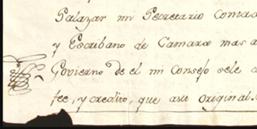 Salazar mi Secretario Contad
y Escribano de Camara mas a
Govierno de el mi Consejo sele d
fee, y credito, que asu original.